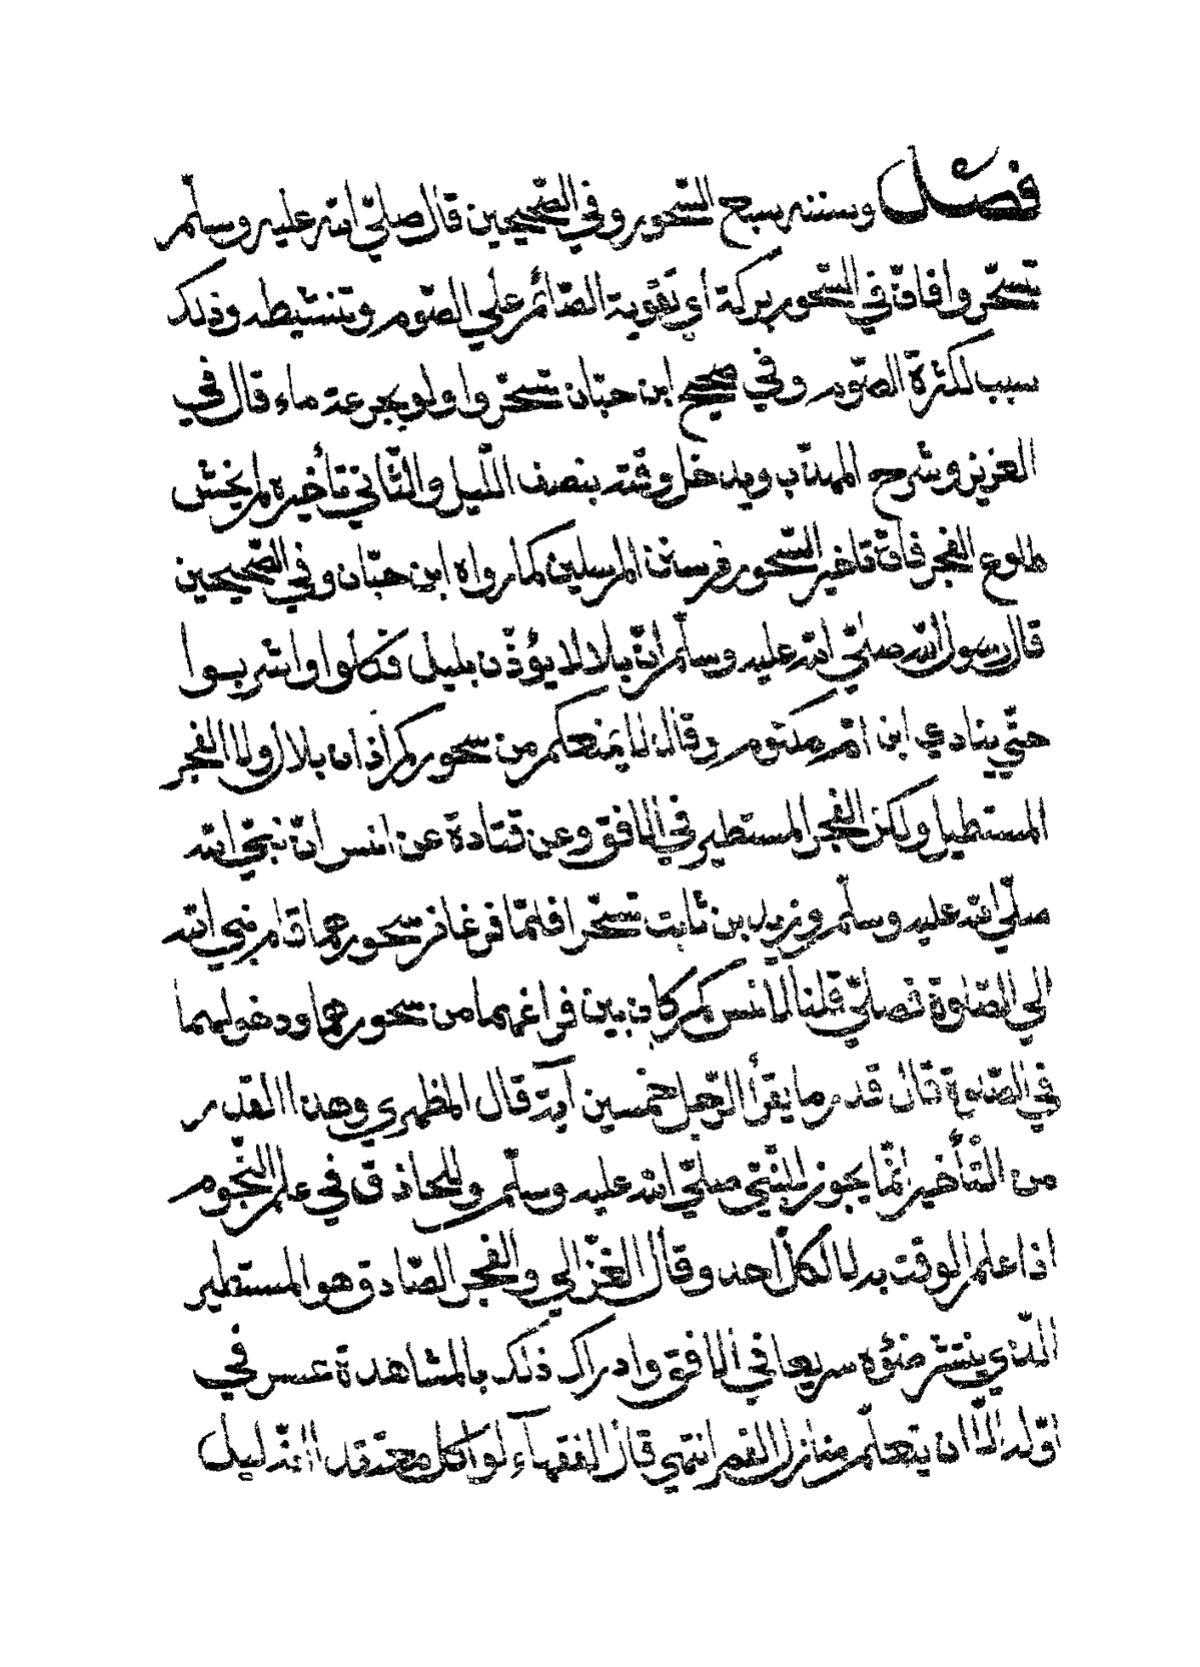 فصل وسننه سبع السّحور وفي الصّحيحين قال صلّي الله عليه وسلّم
تسحّروا فانّ في السّحور بركة اي تقوية الصّائم علي الصّوم وتنشيطه وذلك
سبب لكثرة الصّوم وفي صحيح ابن حبّان تسحّروا ولو بجرعة ماء قال في
العزيز وشرح المهذّب ويدخل وقته بنصف اللّيل والثّاني تأخيره لم يخش
طلوع الفجر فانّ تاخير السّحور من سنن المرسلين كما رواه ابن حبّان وفي الصّحيحين
قال رسول الله صلّي الله عليه وسلّم انّ بلالا لا يؤذّن بليل فكلوا واشربوا
حتّي ينادي ابن امّ مكتوم وقال لا يمنعكم من سحوركم اذان بلال ولا الفجر
المستطيل ولكن الفجر المستطير في الافق وعن قتادة عن انس انّ نبيّ الله
صلّي الله عليه وسلّم وزيد بن ثابت تسحّرا فلمّا فرغا من سحورهما قام نبي الله
الي الصّلوة فصلّي قلنا لانس كم كان بين فراغهما من سحورهما ودخولهما
في الصّلوة قال قدر ما يقرأ الرّجل خمسين آية قال المظهري وهذا القدر
من التّأخير انّما يجوز للنّبيّ صلّي الله عليه وسلّم وللحاذق في علم النّجوم
اذا علم الوقت به لا لكلّ احد وقال الغزّالي والفجر الصّادق هو المستطير
الّذي ينتشر ضوءه سريعا في الافق وادراك ذلك بالمشاهدة عسر في
اوّله الّا ان يتعلّم منازل القمر انتهي قال الفقهآء لو اكل معتقدا انّه ليل